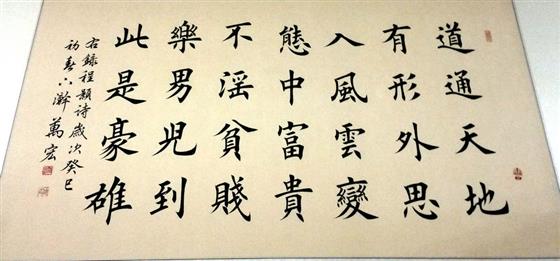 道通天地
有形外思
入風雲變
態中富貴
不滛貧賤
樂男兒到
此是豪雄
右錄程顥詩歲次癸巳
初春 萬宏